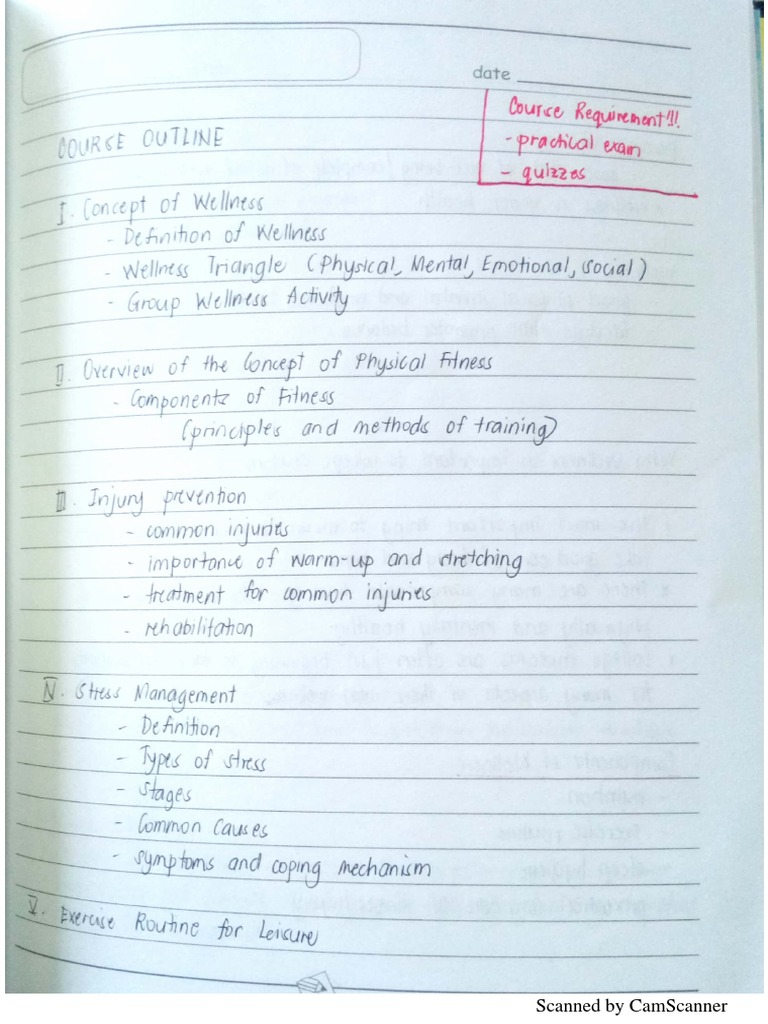 date
Course Requirement!!!
- practical exam
- quizzes
COURSE OUTLINE
I. Concept of Wellness
- Definition of Wellness
- Wellness Triangle (Physical, Mental, Emotional, Social)
- Group Wellness Activity
II. Overview of the Concept of Physical Fitness
- Components of Fitness
(principles and methods of training)
III. Injury prevention
- common injuries
- importance of warm-up and stretching
- treatment for common injuries
- rehabilitation
IV. Stress Management
- Definition
- Types of stress
- Stages
- Common Causes
- symptoms and coping mechanism
V. Exercise Routine for Leisure
Scanned by CamScanner